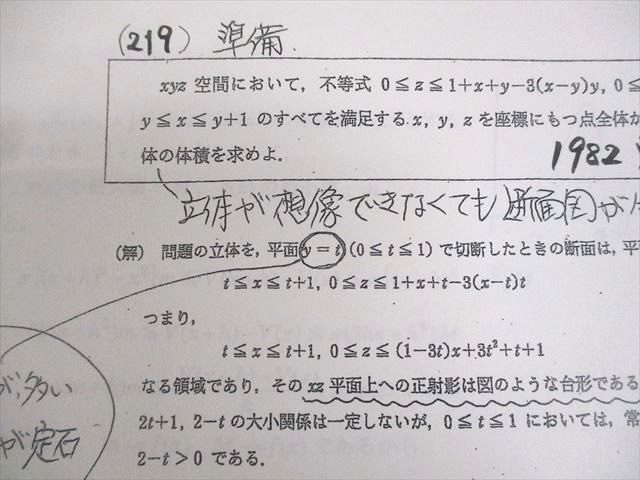 (219) 準備.
xyz 空間において, 不等式 0≦z≦1+x+y−3(x−y)y, 0≦
y≦x≦y+1 のすべてを満足する x, y, z を座標にもつ点全体か
体の体積を求めよ.
1982
立体が想像できなくても断面図が
(解) 問題の立体を, 平面 y=t (0≦t≦1) で切断したときの断面は, 平
t≦x≦t+1, 0≦z≦1+x+t−3(x−t)t
つまり,
t≦x≦t+1, 0≦z≦(1−3t)x+3t²+t+1
なる領域であり, その xz 平面上への正射影は図のような台形である
が, 多い
2t+1, 2−t の大小関係は一定しないが, 0≦t≦1 においては, 常
が定石
2−t>0 である.